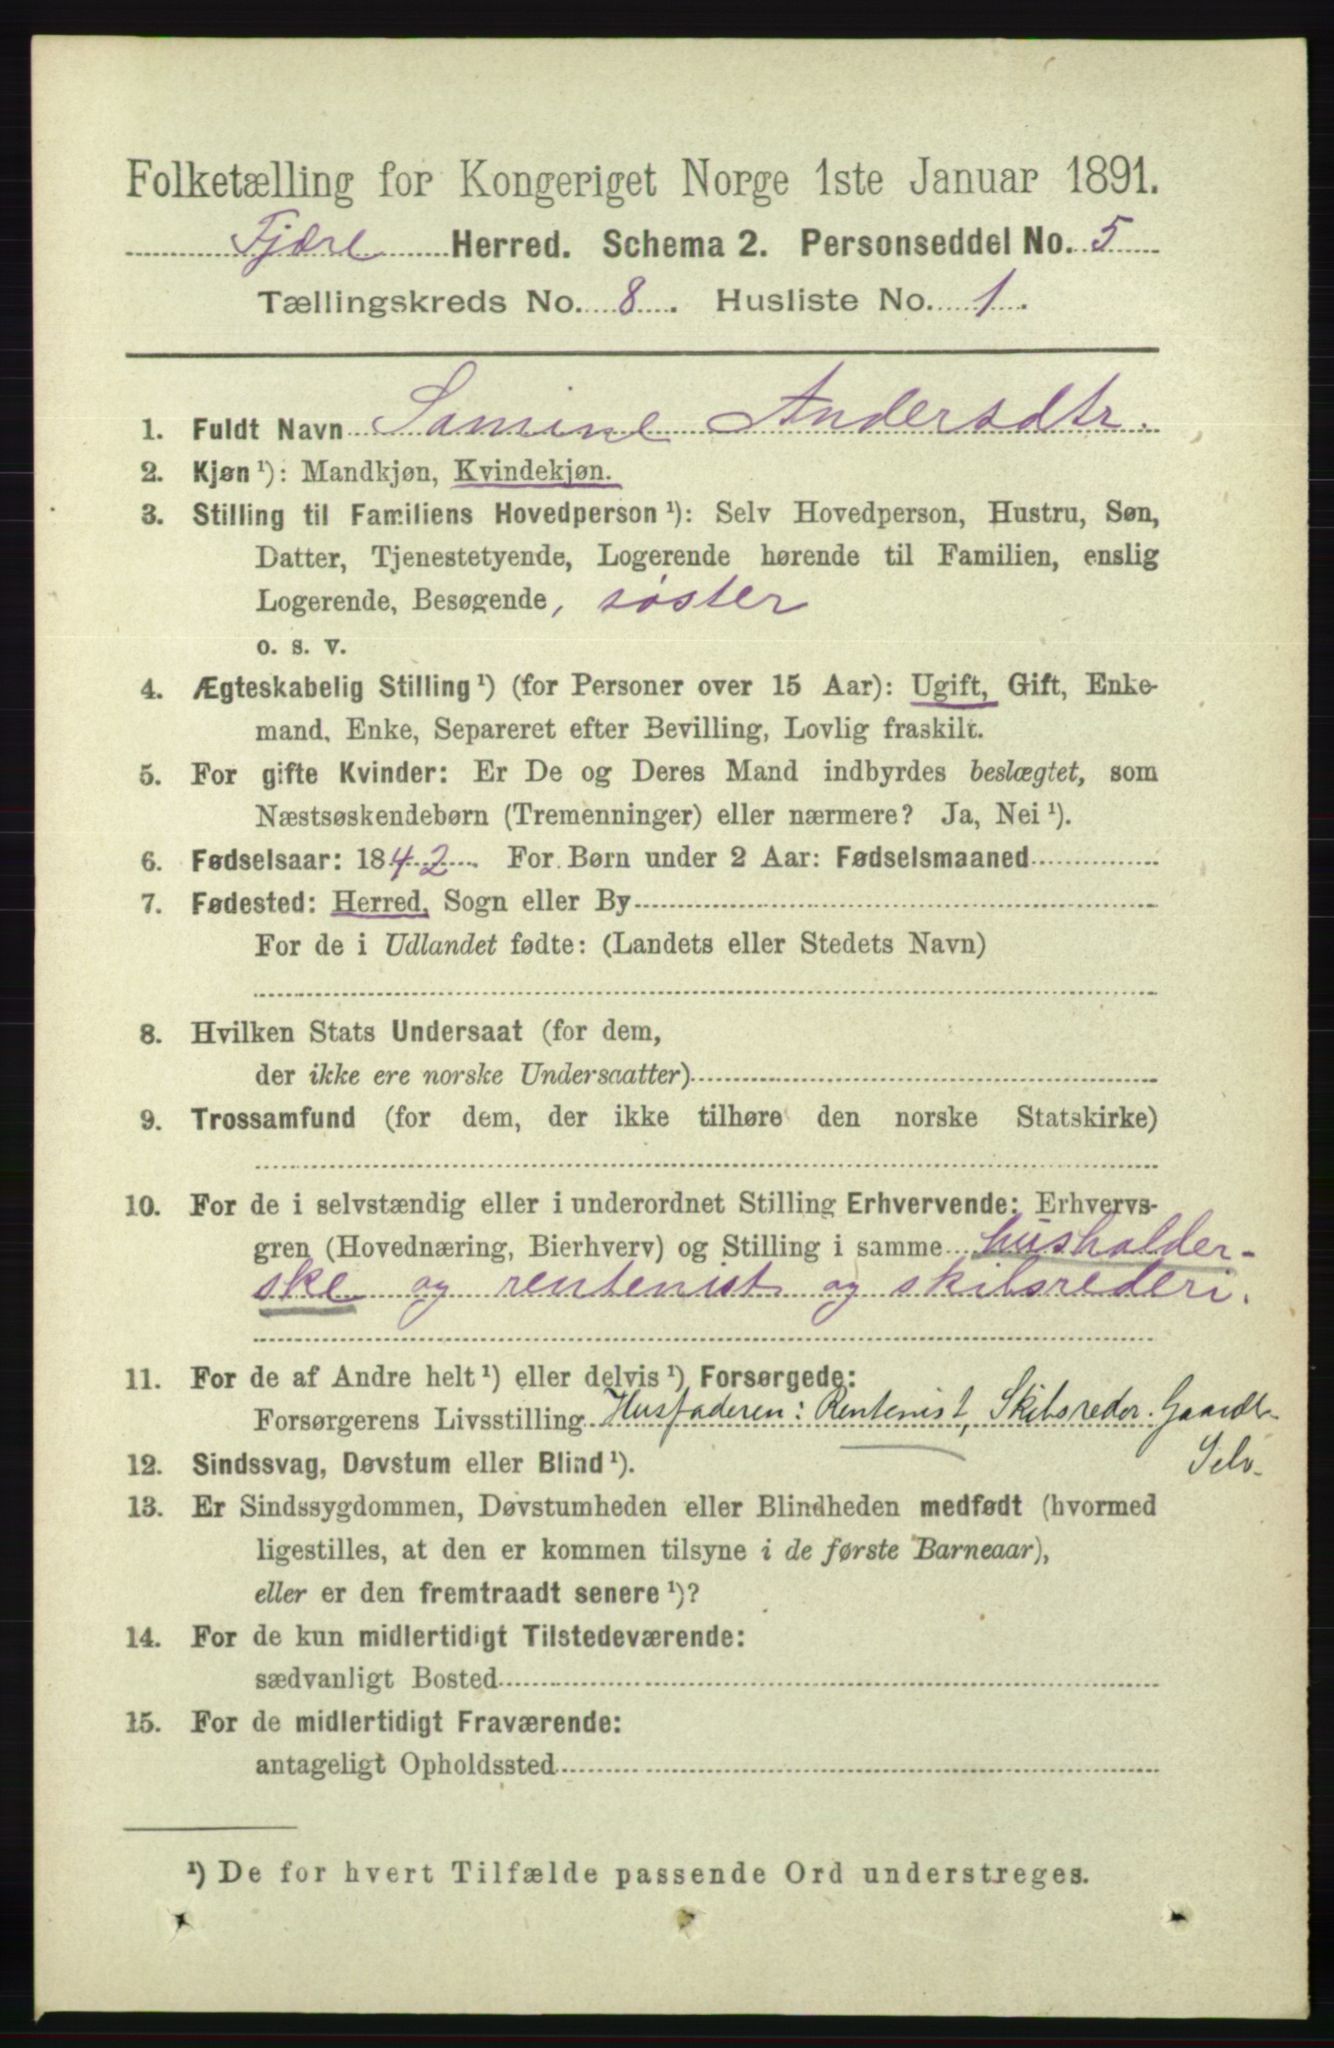 Folketælling for Kongeriget Norge 1ste Januar 1891.
Fjære Herred. Schema 2. Personseddel No. 5
Tællingskreds No. 8. Husliste No. 1.
1. Fuldt Navn Samine Andersdtr.
2. Kjøn ¹): Mandkjøn, Kvindekjøn.
3. Stilling til Familiens Hovedperson ¹): Selv Hovedperson, Hustru, Søn,
Datter, Tjenestetyende, Logerende hørende til Familien, enslig
Logerende, Besøgende, søster
o. s. v.
4. Ægteskabelig Stilling ¹) (for Personer over 15 Aar): Ugift, Gift, Enke-
mand, Enke, Separeret efter Bevilling, Lovlig fraskilt.
5. For gifte Kvinder: Er De og Deres Mand indbyrdes beslægtet, som
Næstsøskendebørn (Tremenninger) eller nærmere? Ja, Nei ¹).
6. Fødselsaar: 1842. For Børn under 2 Aar: Fødselsmaaned
7. Fødested: Herred, Sogn eller By
For de i Udlandet fødte: (Landets eller Stedets Navn)
8. Hvilken Stats Undersaat (for dem,
der ikke ere norske Undersaatter)
9. Trossamfund (for dem, der ikke tilhøre den norske Statskirke)
10. For de i selvstændig eller i underordnet Stilling Erhvervende: Erhvervs-
gren (Hovednæring, Bierhverv) og Stilling i samme husholder-
ske og rentenist og skibsrederi.
11. For de af Andre helt ¹) eller delvis ¹) Forsørgede:
Forsørgerens Livsstilling Husfaderen: Rentenist, Skibsreder. Gaardb.
Selv.
12. Sindssvag, Døvstum eller Blind ¹).
13. Er Sindssygdommen, Døvstumheden eller Blindheden medfødt (hvormed
ligestilles, at den er kommen tilsyne i de første Barneaar),
eller er den fremtraadt senere ¹)?
14. For de kun midlertidigt Tilstedeværende:
sædvanligt Bosted
15. For de midlertidigt Fraværende:
antageligt Opholdssted
¹) De for hvert Tilfælde passende Ord understreges.